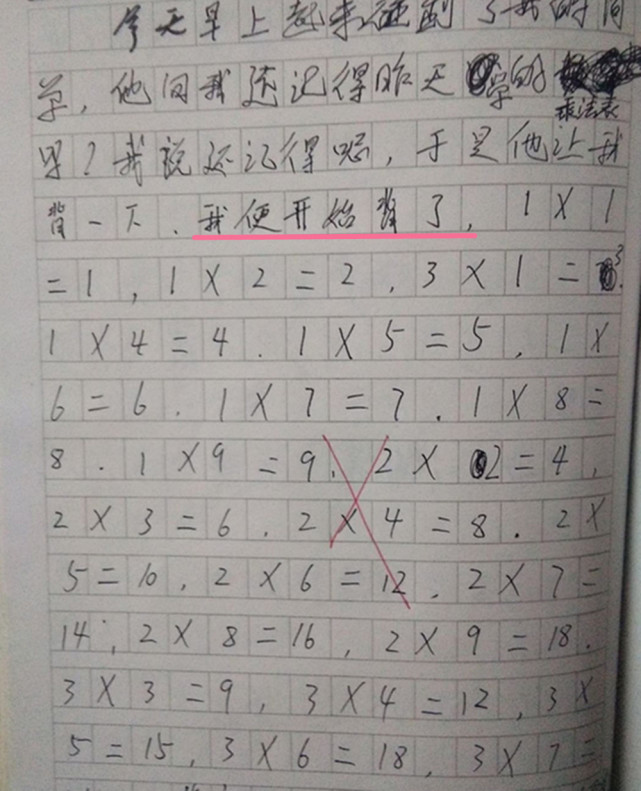 今天早上起来碰到了我的同
学，他问我还记得昨天学的乘法表
里？我说还记得呢，于是他让我
背一下．我便开始背了，1×1
=1，1×2=2．3×1=3．
1×4=4．1×5=5，1×
6=6．1×7=7．1×8=
8．1×9=9．2×2=4，
2×3=6．2×4=8．2×
5=10，2×6=12．2×7=
14，2×8=16，2×9=18．
3×3=9，3×4=12，3×
5=15，3×6=18，3×7=